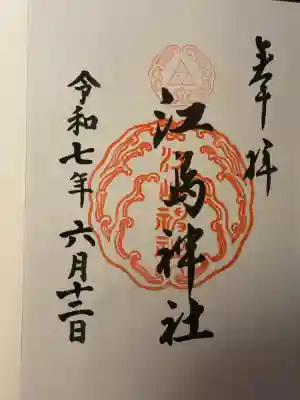 奉拝
江島神社
令和七年六月十二日